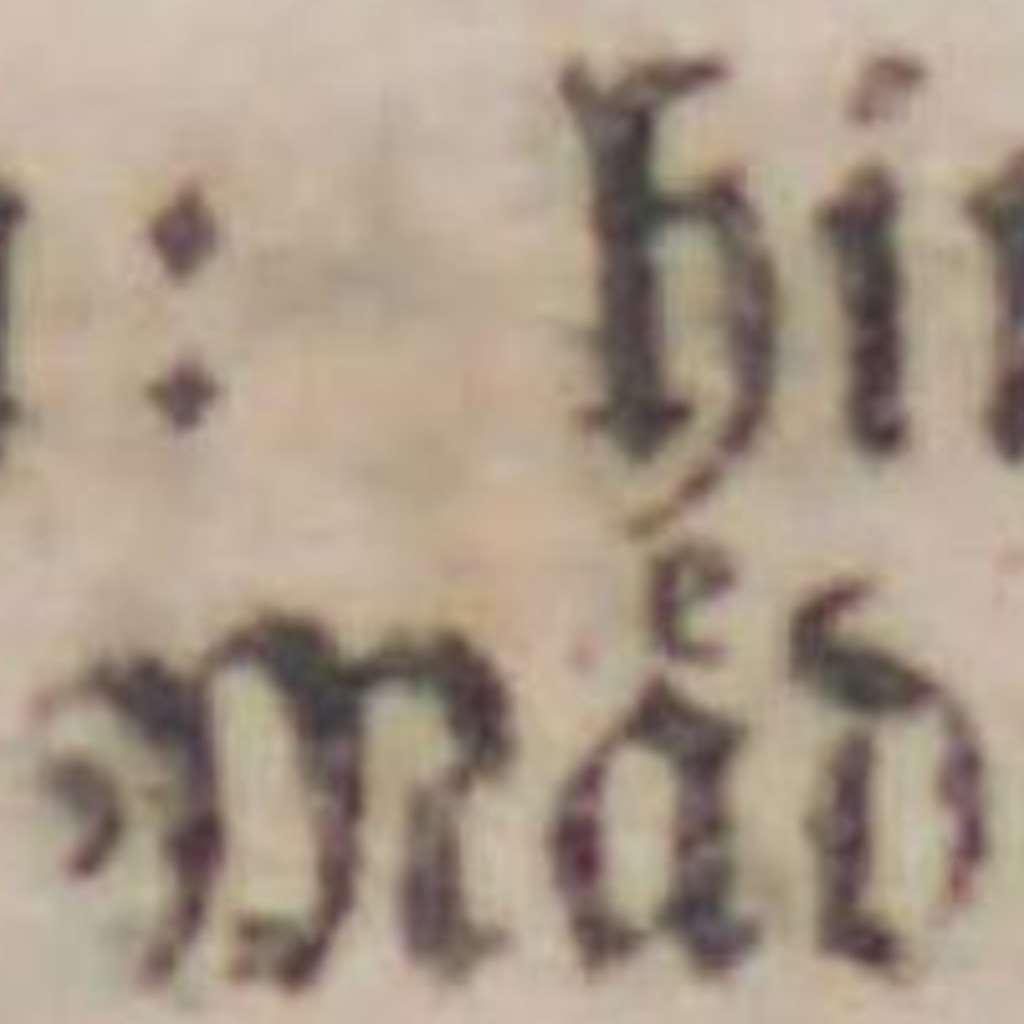 : hi
Maͤd